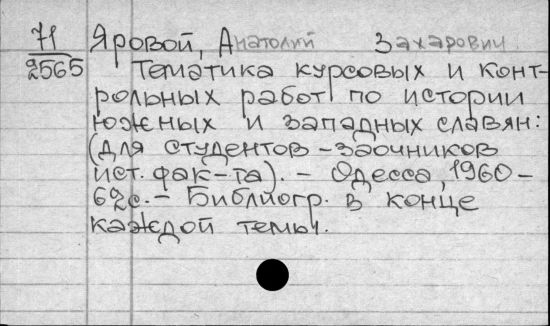 71 Яровой, Анатолий Захарович
2565 Тематика курсовых и конт-
рольных работ по истории
южных и западных славян:
(для студентов-заочников
ист. фак-та). – Одесса, 1960 –
62с. – Библиогр. в конце
каждой темы.